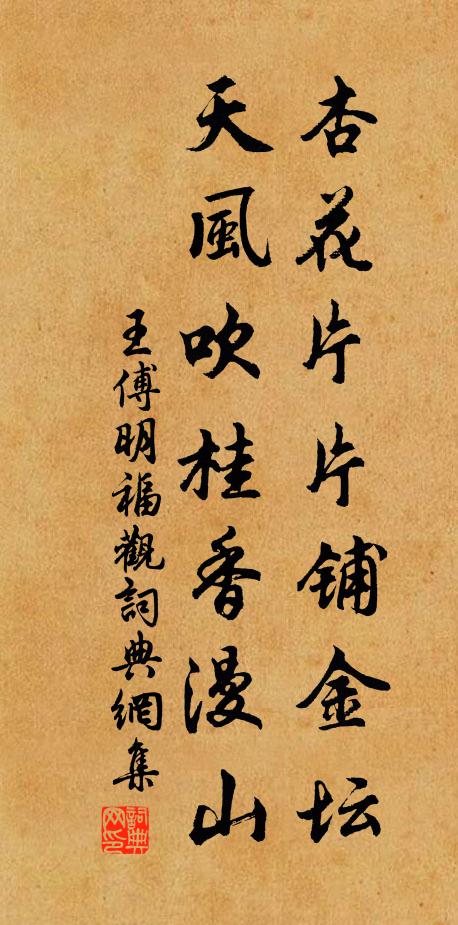 杏花片片铺金坛
天風吹桂香漫山
王傅明福觀詞典網集
詞典网印